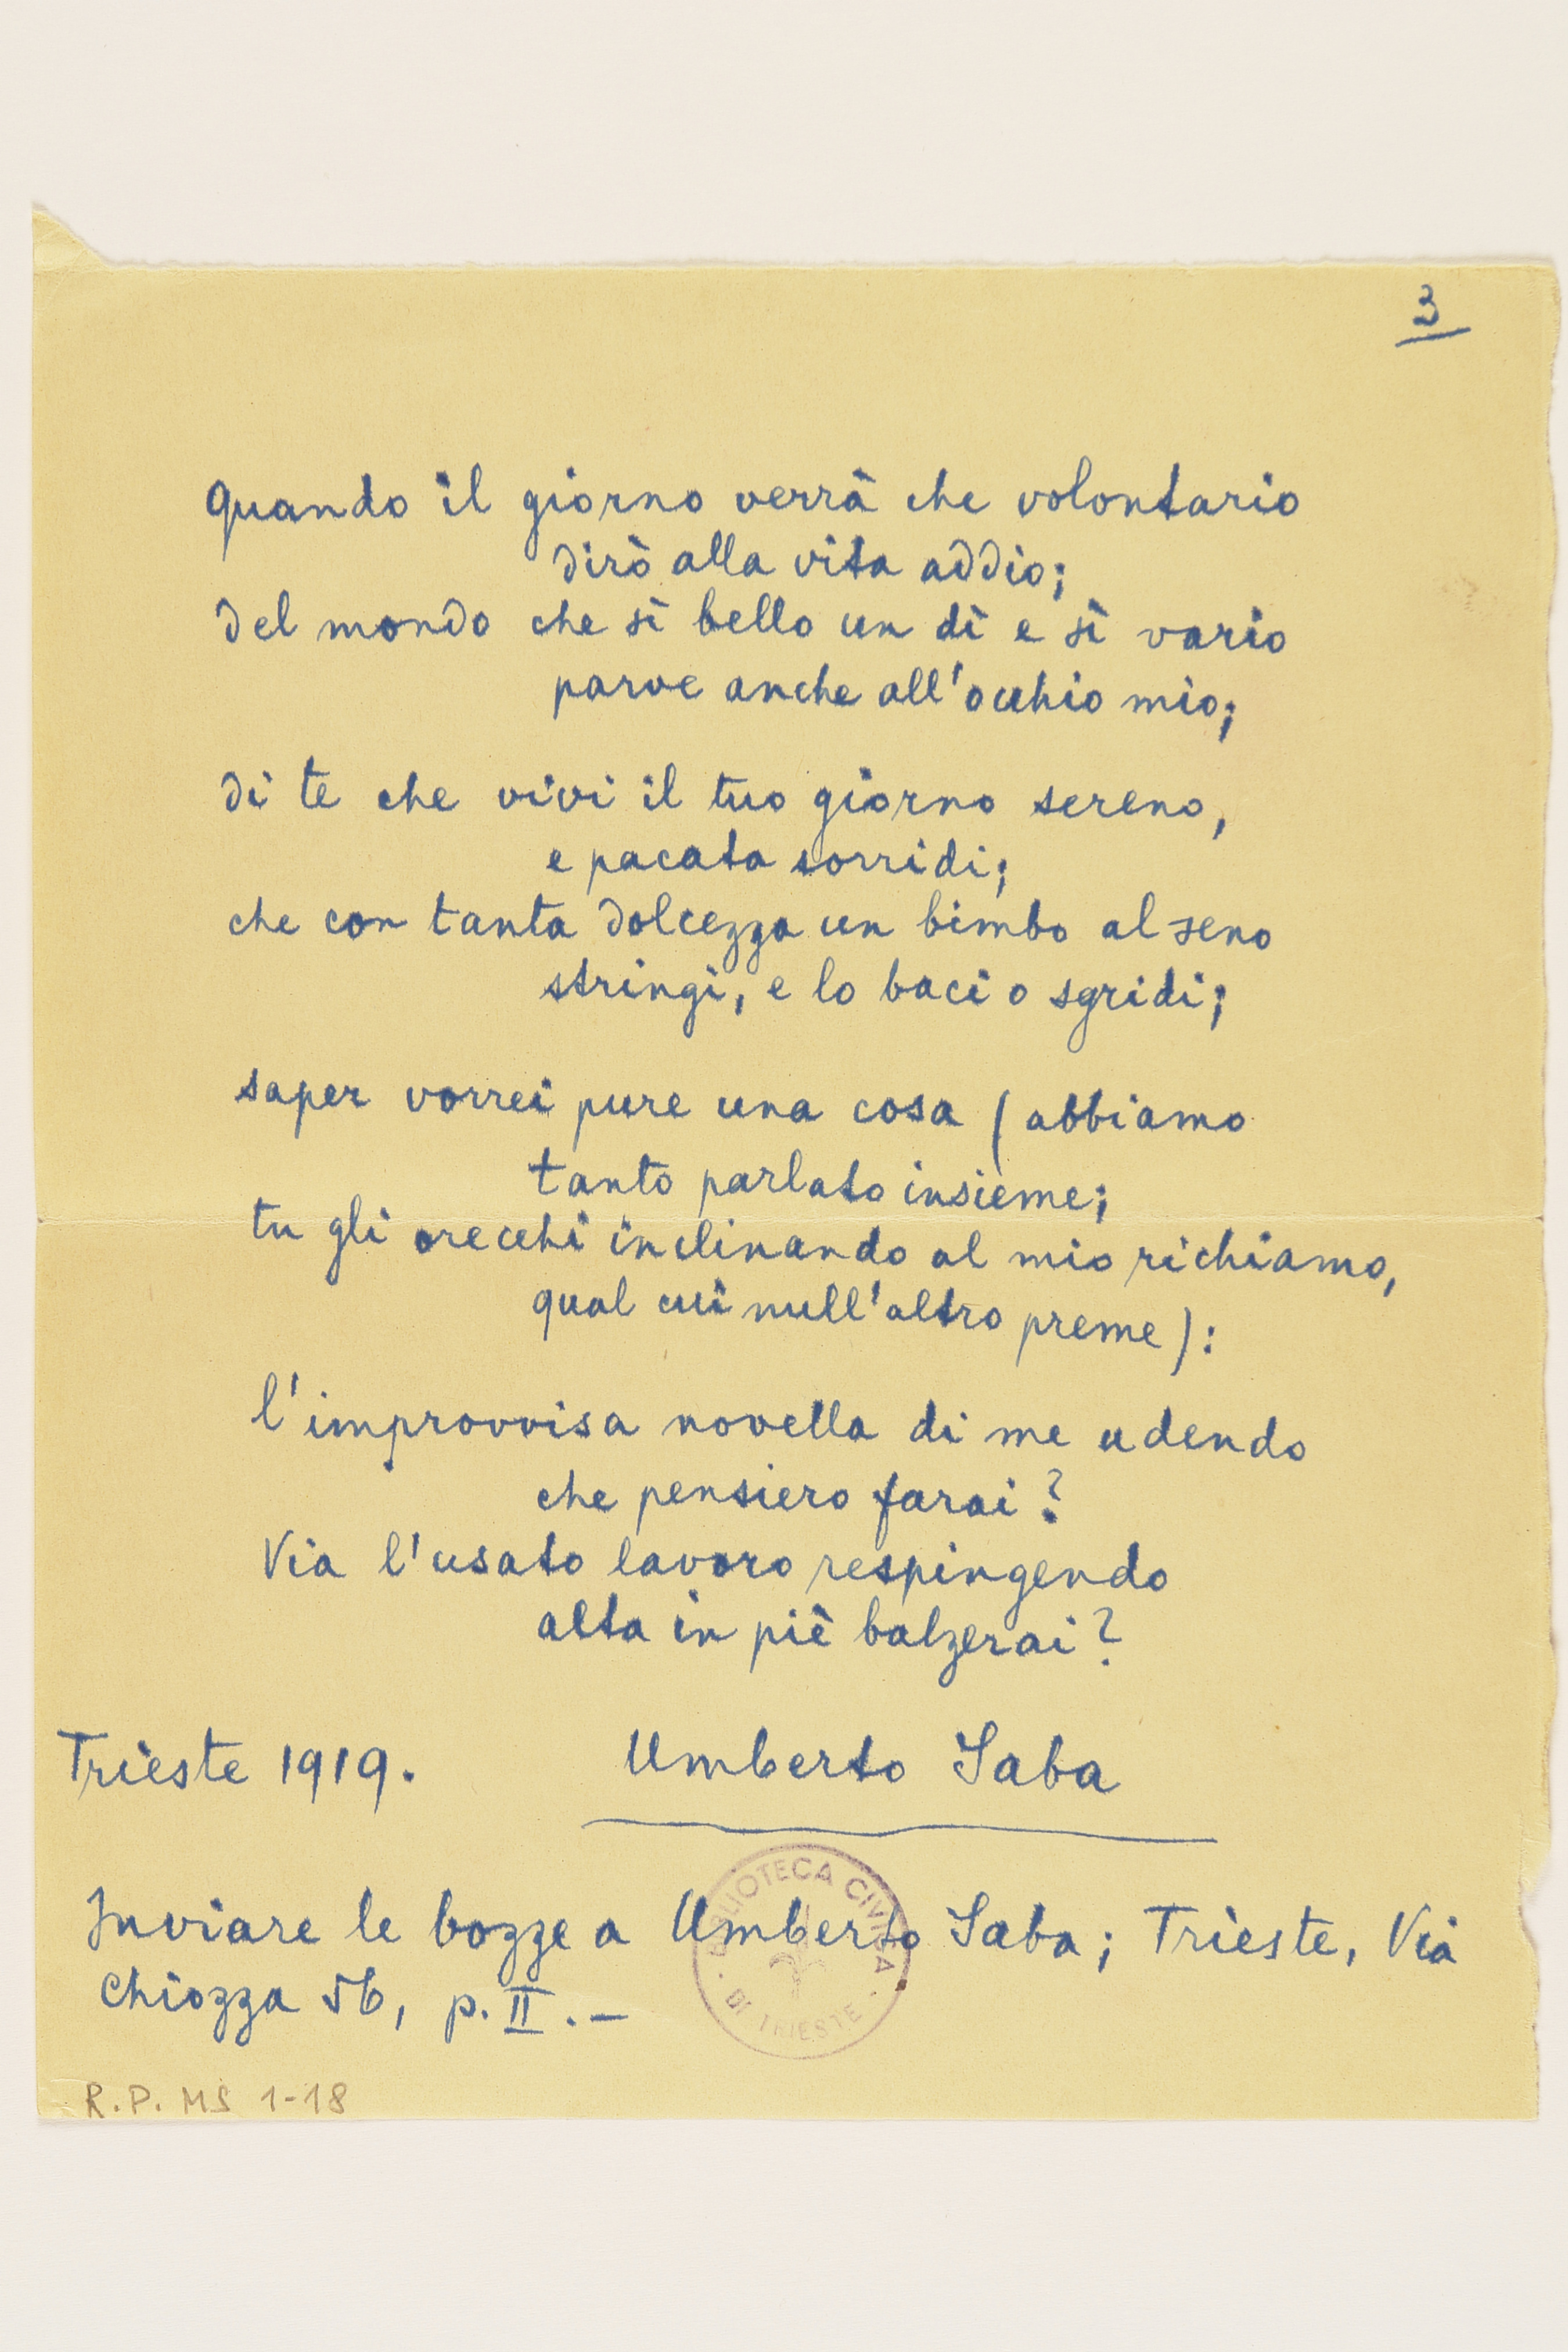 3
Quando il giorno verrà che volontario
dirò alla vita addio;
del mondo che sì bello un dì e sì vario
parve anche all'occhio mio;
di te che vivi il tuo giorno sereno,
e pacata sorridi;
che con tanta dolcezza un bimbo al seno
stringi, e lo baci o sgridi;
saper vorrei pure una cosa (abbiamo
tanto parlato insieme;
tu gli orecchi inclinando al mio richiamo,
qual cui null'altro preme):
l'improvvisa novella di me udendo
che pensiero farai?
Via l'usato lavoro respingendo
alta in piè balzerai?
Trieste 1919. Umberto Saba
Inviare le bozze a Umberto Saba; Trieste, Via
Chiozza 56, p. II. –
BIBLIOTECA CIVICA
DI TRIESTE
R.P. MS 1-18